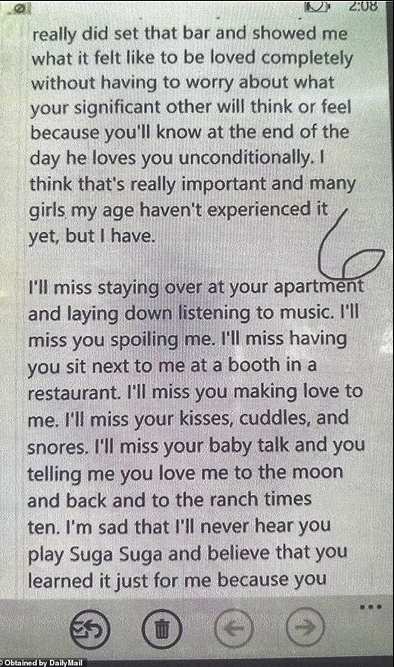 2:08
really did set that bar and showed me
what it felt like to be loved completely
without having to worry about what
your significant other will think or feel
because you'll know at the end of the
day he loves you unconditionally. I
think that's really important and many
girls my age haven't experienced it
yet, but I have.
6
I'll miss staying over at your apartment
and laying down listening to music. I'll
miss you spoiling me. I'll miss having
you sit next to me at a booth in a
restaurant. I'll miss you making love to
me. I'll miss your kisses, cuddles, and
snores. I'll miss your baby talk and you
telling me you love me to the moon
and back and to the ranch times
ten. I'm sad that I'll never hear you
play Suga Suga and believe that you
learned it just for me because you
© Obtained by DailyMail